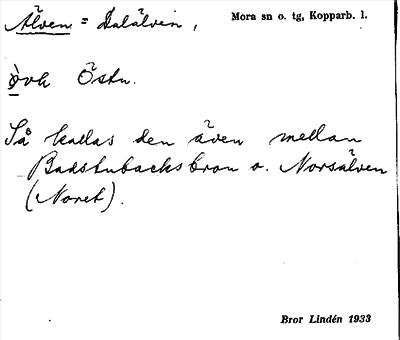 Älven = Dalälven, Mora sn o. tg, Kopparb. l.
Östn.
Så kallas den även mellan
Badstubacksbron o. Norsälven
(Noret).
Bror Lindén 1933